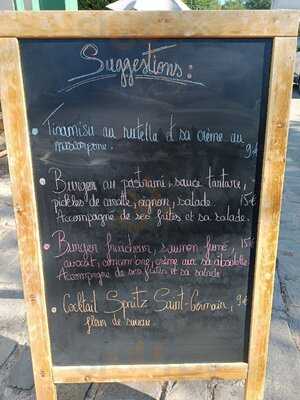 Suggestions :
Tiramisu au nutella et sa crème au
mascarpone.
9€
Burger au pastrami, sauce tartare,
pickles de carotte, oignon, salade.
15€
Accompagné de ses frites et sa salade.
Burger fraîcheur, saumon fumé,
15€
avocat, concombre, crème aux sa ciboulette
Accompagné de ses frites et sa salade
Cocktail Spritz Saint-Germain,
9€
fleur de sureau